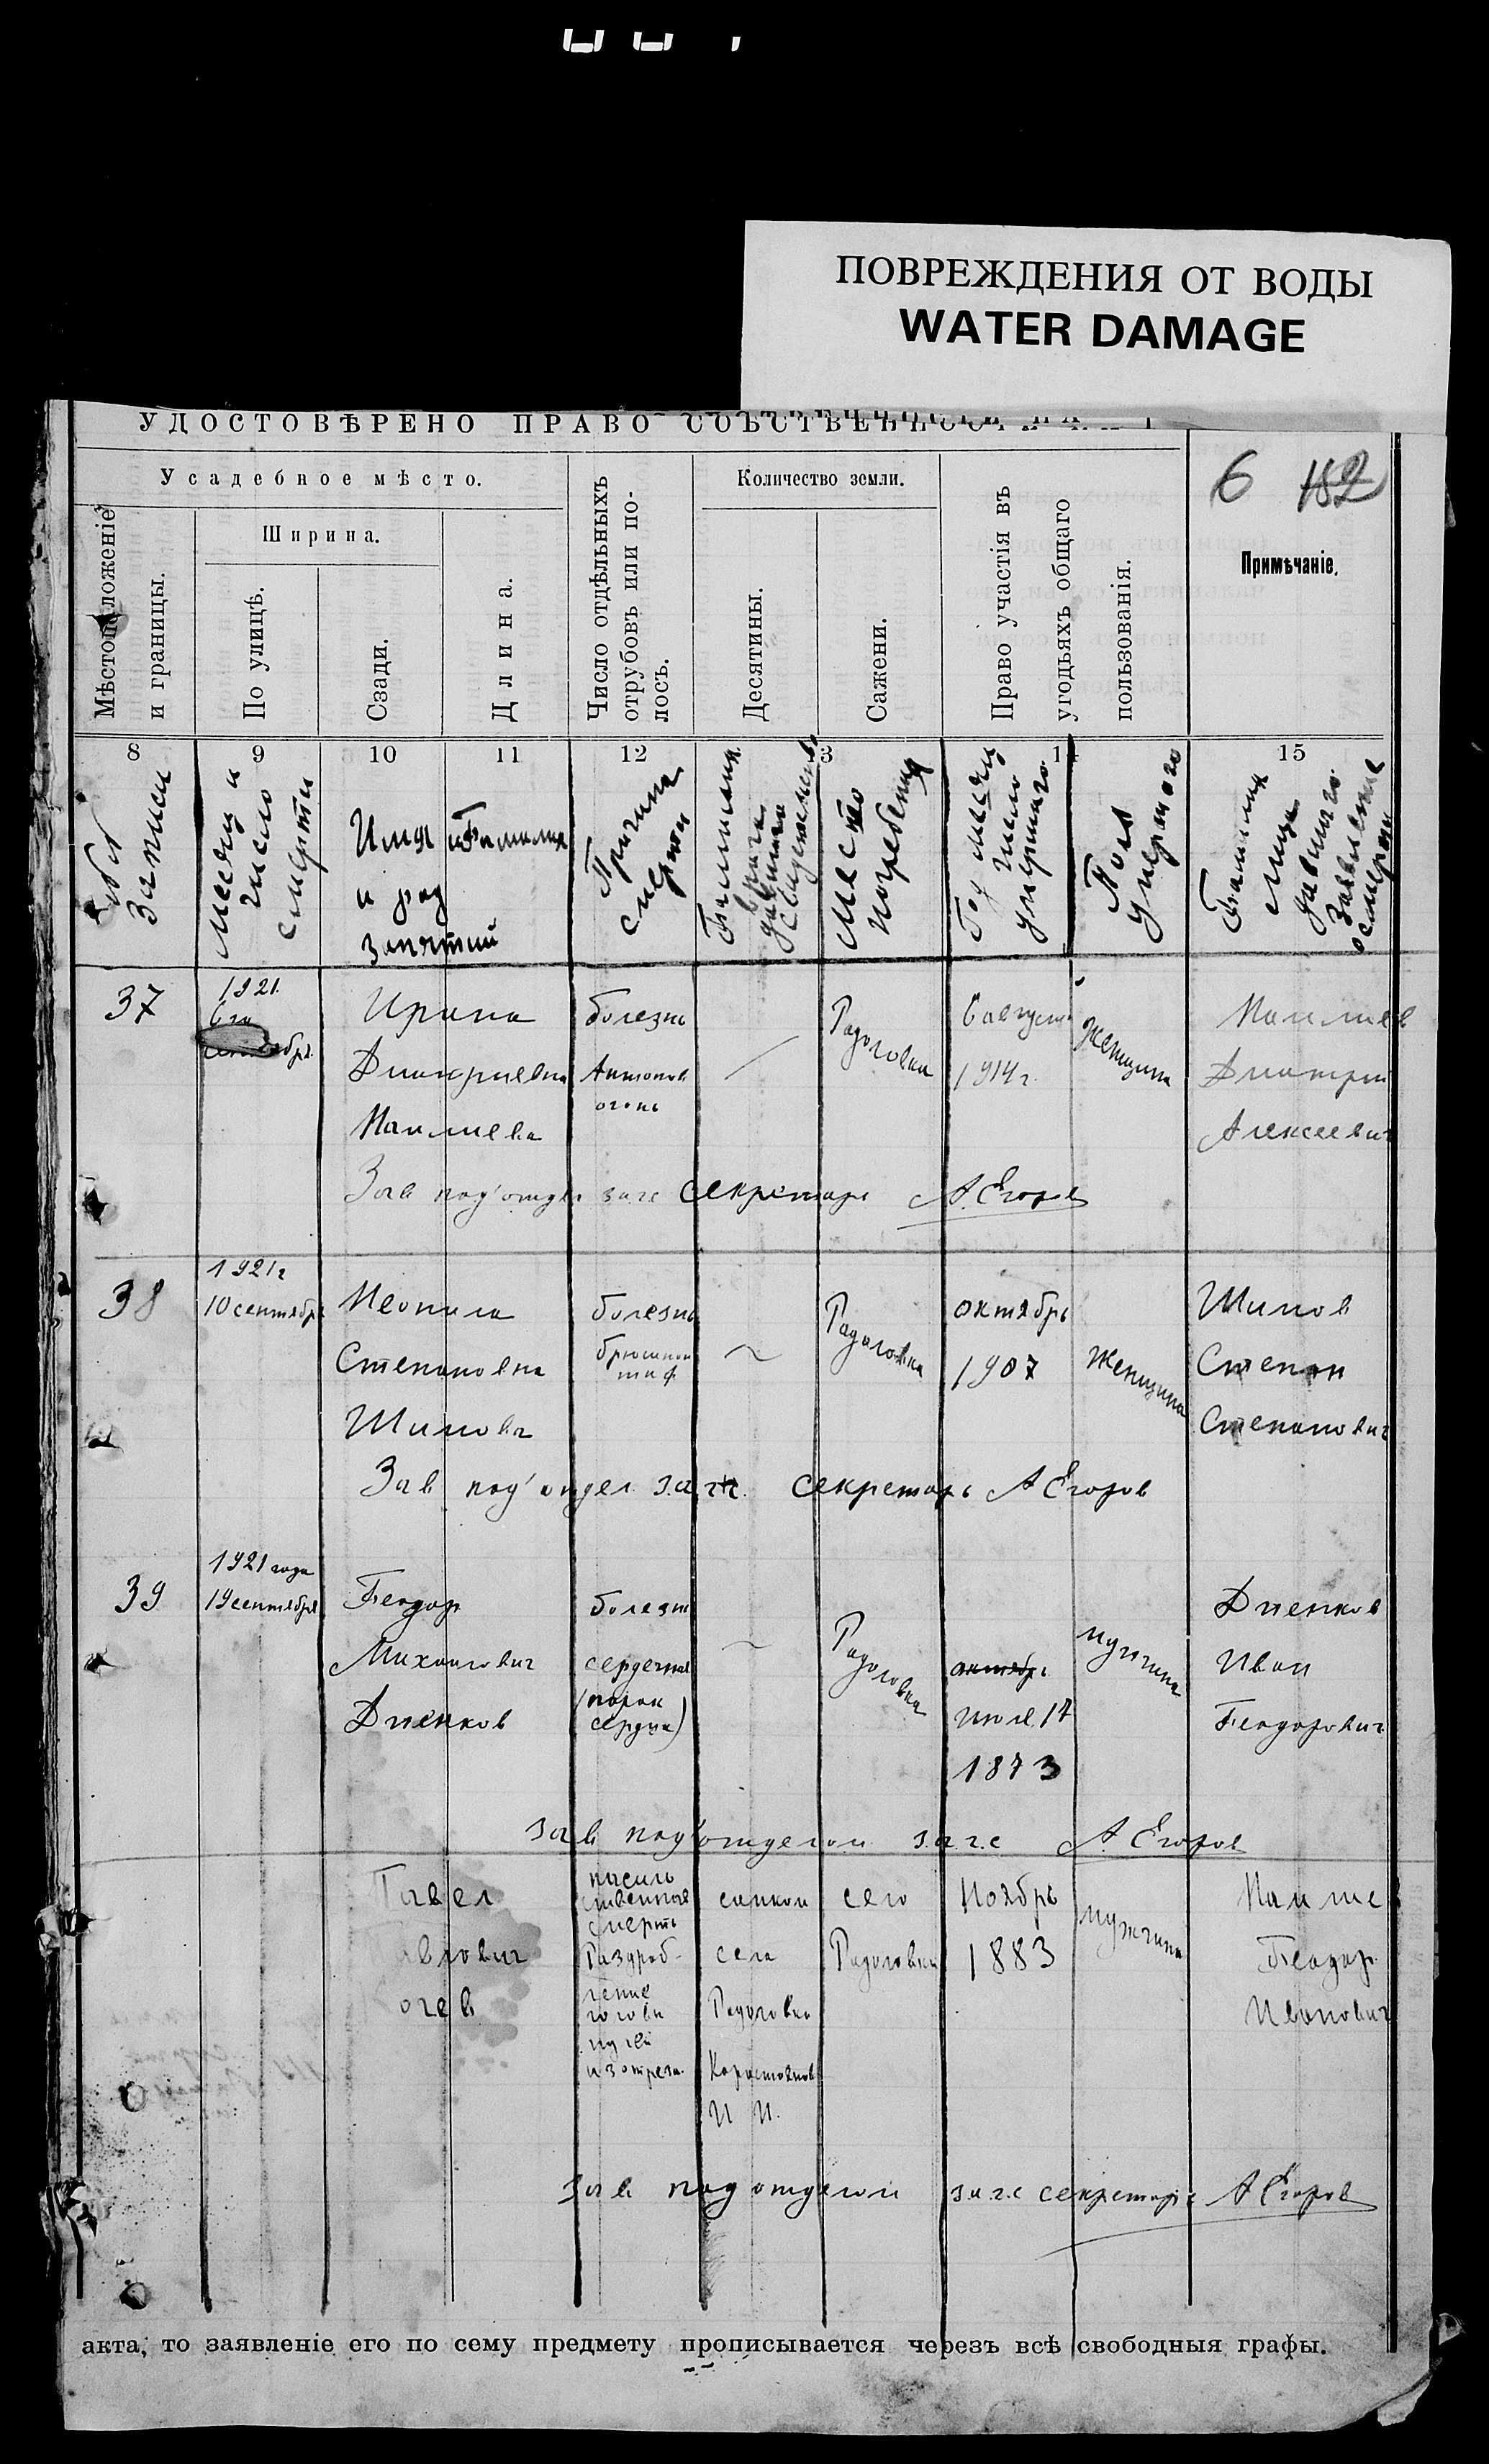 ПОВРЕЖДЕНИЯ ОТ ВОДЫ
WATER DAMAGE
УДОСТОВѢРЕНО ПРАВО СОБСТВЕННОСТИ НА
6 182
Усадебное мѣсто.
Количество земли.
Ширина.
Мѣстоположеніе
и границы.
По улицѣ.
Сзади.
Длина.
Число отдѣльныхъ
отрубовъ или по-
лосъ.
Десятины.
Сажени.
Право участія въ
угодьяхъ общаго
пользованія.
Примѣчаніе.
8 9 10 11 12 3 14 15
записи
Месяц и
число
смерти
Имя и Фамилия
и род
занятий
Причина
смерти
Фамилия
врача
давшаго
свидетельств
Место
погребения
Год месяц
число
умершаго
Пол
умершого
Фамилия
лица
давшого
заявление
о смерти
37
1921
Ирина
Дмитриевна
болезнь
Антонов
огонь
Радоловка
6 август
1914 г.
женщина
Дмитрий
Алексеевич
Зав под'отдел загс секретарь А. Егоров
38
1921 г
10 сентября
Неонила
Степановна
Шилова
болезнь
брюшной
тиф
Радоловка
октябрь
1907
Женщина
Шилов
Степан
Степанович
Зав под'отдел загс. секретарь А Егоров
39
1921 года
19 сентября
Феодор
Михайлович
Дпенков
болезнь
сердечная
(порок
сердца)
Радоловка
октябрь
июля 17
1873
мужчина
Дпенков
Иван
Феодорович
Зав под'отделом загс А. Егоров
Павел
авлович
насиль
ственная
смерть
Раздроб-
ление
головы
пулей
из отреза.
села
Радоловка
И И.
село
Радоловка
Ноябрь
1883
мужчина
Феодор
Иванович
Зав под отделом загс секретарь А Егоров
акта, то заявленіе его по сему предмету прописывается черезъ всѣ свободныя графы.